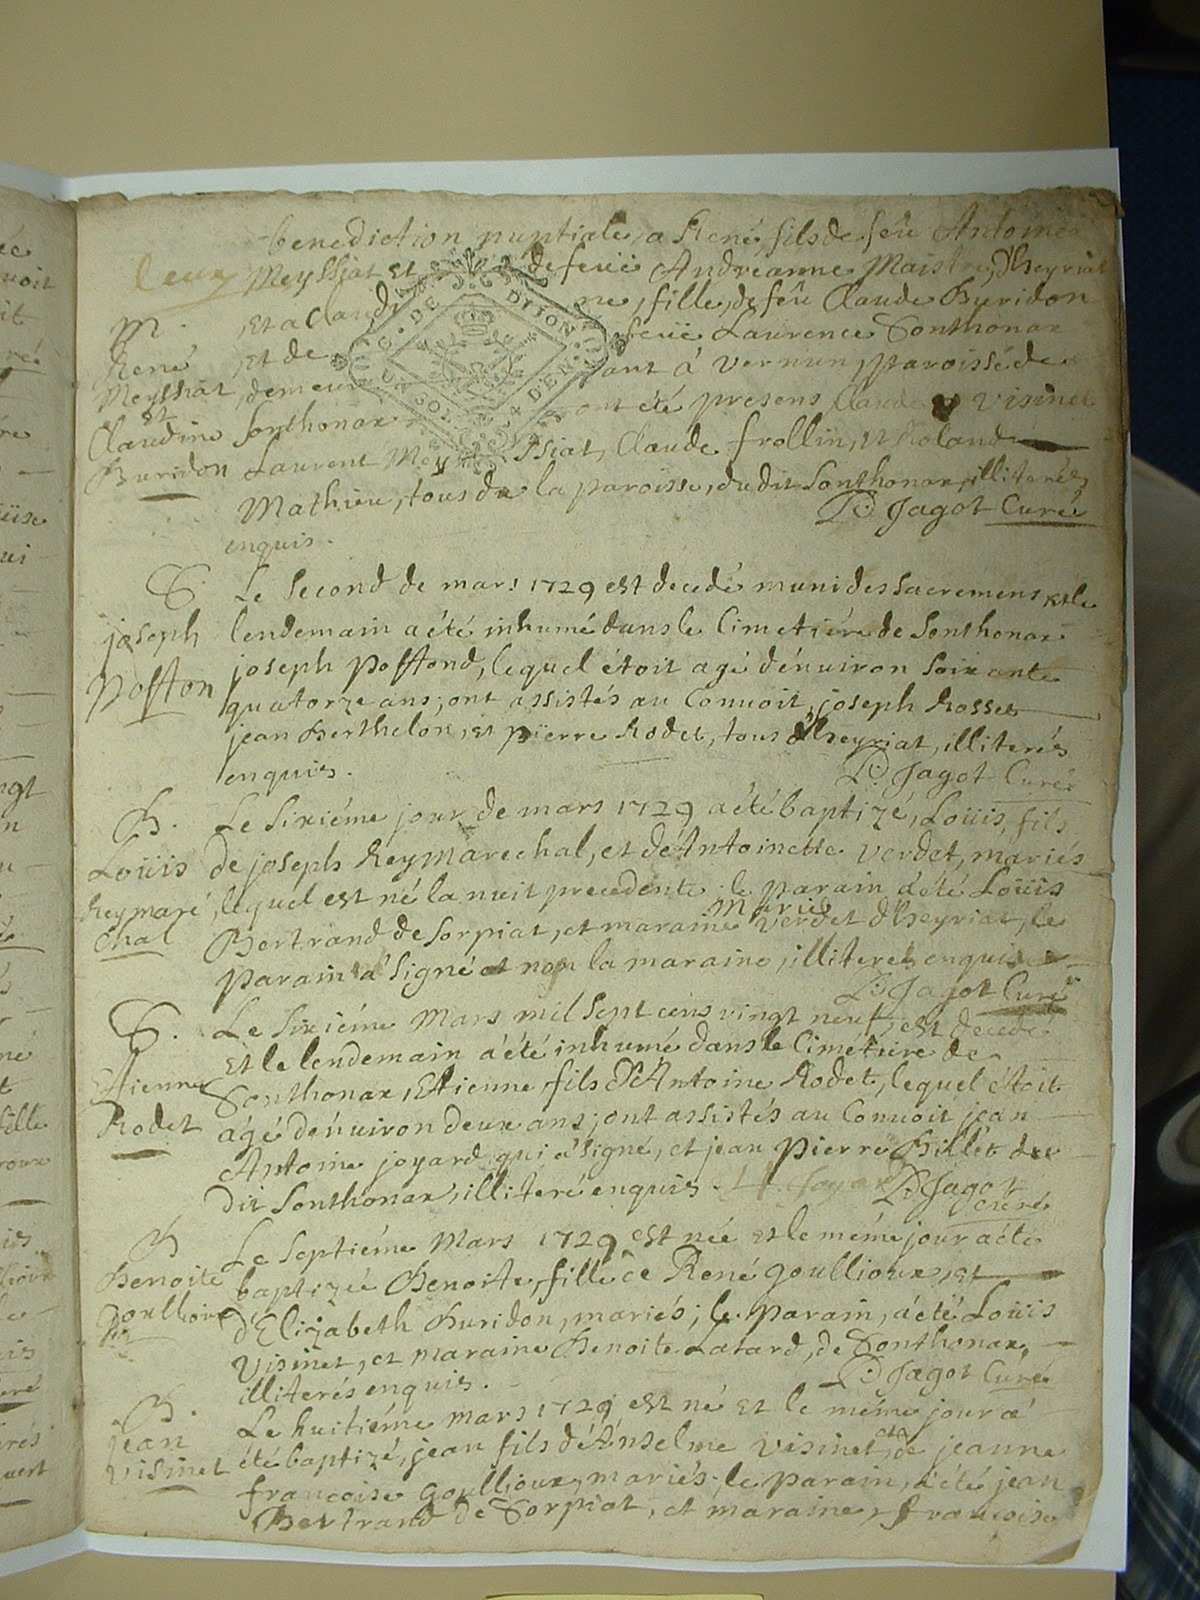 benediction nuptiale, a René, fils de feû Antoine
Meyssiat et de feüe Andréanne Maistre, d'heyriat
M.
René
Meyssiat
et
Claudine
Buridon
et a Claudine, fille, de feû Claude Buridon
et de feüe Laurence Sonthonax
demeurant à Vernun, paroisse de
Sonthonax ont été presens Claude Visinet
Laurent Meyssiat, Claude frollin, et Roland
Mathieu, tous de la paroisse, du dit Sonthonax, illiterés
enquis.
D. Jagot Curé
S.
joseph
Poffon
Le Second de mars 1729 est decedé muni des sacremens et le
lendemain a été inhumé dans le Cimetiére de Sonthonax
joseph Poffond, lequel étoit agé d'énuiron soixante
quatorze ans; ont assistés au Conuoit, joseph Rosset
jean Berthelon, et pïerre Rodet, tous d'heyriat, illiterés
enquis.
D. Jagot Curé
B.
Loüis
Reymaré
chal
Le Sixiéme jour de mars 1729 a été baptizé, Loüis, fils
de joseph Reymarechal, et d'é Antoinette Verdet, mariés
lequel est né la nuit precedente. le parain a été Loüis
Bertrand de Sorpiat, et maraine Marie Verdet d'heyriat, le
parain à signé et non la maraine, illiterés enquis
D. Jagot Curé
S.
Etienne
Rodet
Le Sixiéme Mars mil sept cens vingt neuf, est decedé
Et le lendemain à été inhumé dans le Cimétiére de
Sonthonax, Etienne, fils d'Antoine Rodet, lequel étoit
agé d'énuiron deux ans; ont assistés au Conuoit jean
Antoine joyard qui a signé, et jean pierre Billet du
dit Sonthonax, illiteré enquis.
D. Jagot
curé
B
Benoite
Goullioux
Le Septiéme Mars 1729 est née et le méme jour a été
baptizée Benoite, fille de René goullioux, et
d'Elizabeth Buridon, mariés; le parain, a été Loüis
Visinet, et maraine Benoite Latard, de Sonthonax,
illiterés enquis.
D. Jagot Curé
B.
jean
Visinet
Le huitiéme mars 1729 est né et le méme jour a
été baptizé, jean fils d'é Anselme Visinet, et de jeanne
francoise Goullioux, mariés; le parain, a été jean
Bertrand de Sorpiat, et maraine, francoise